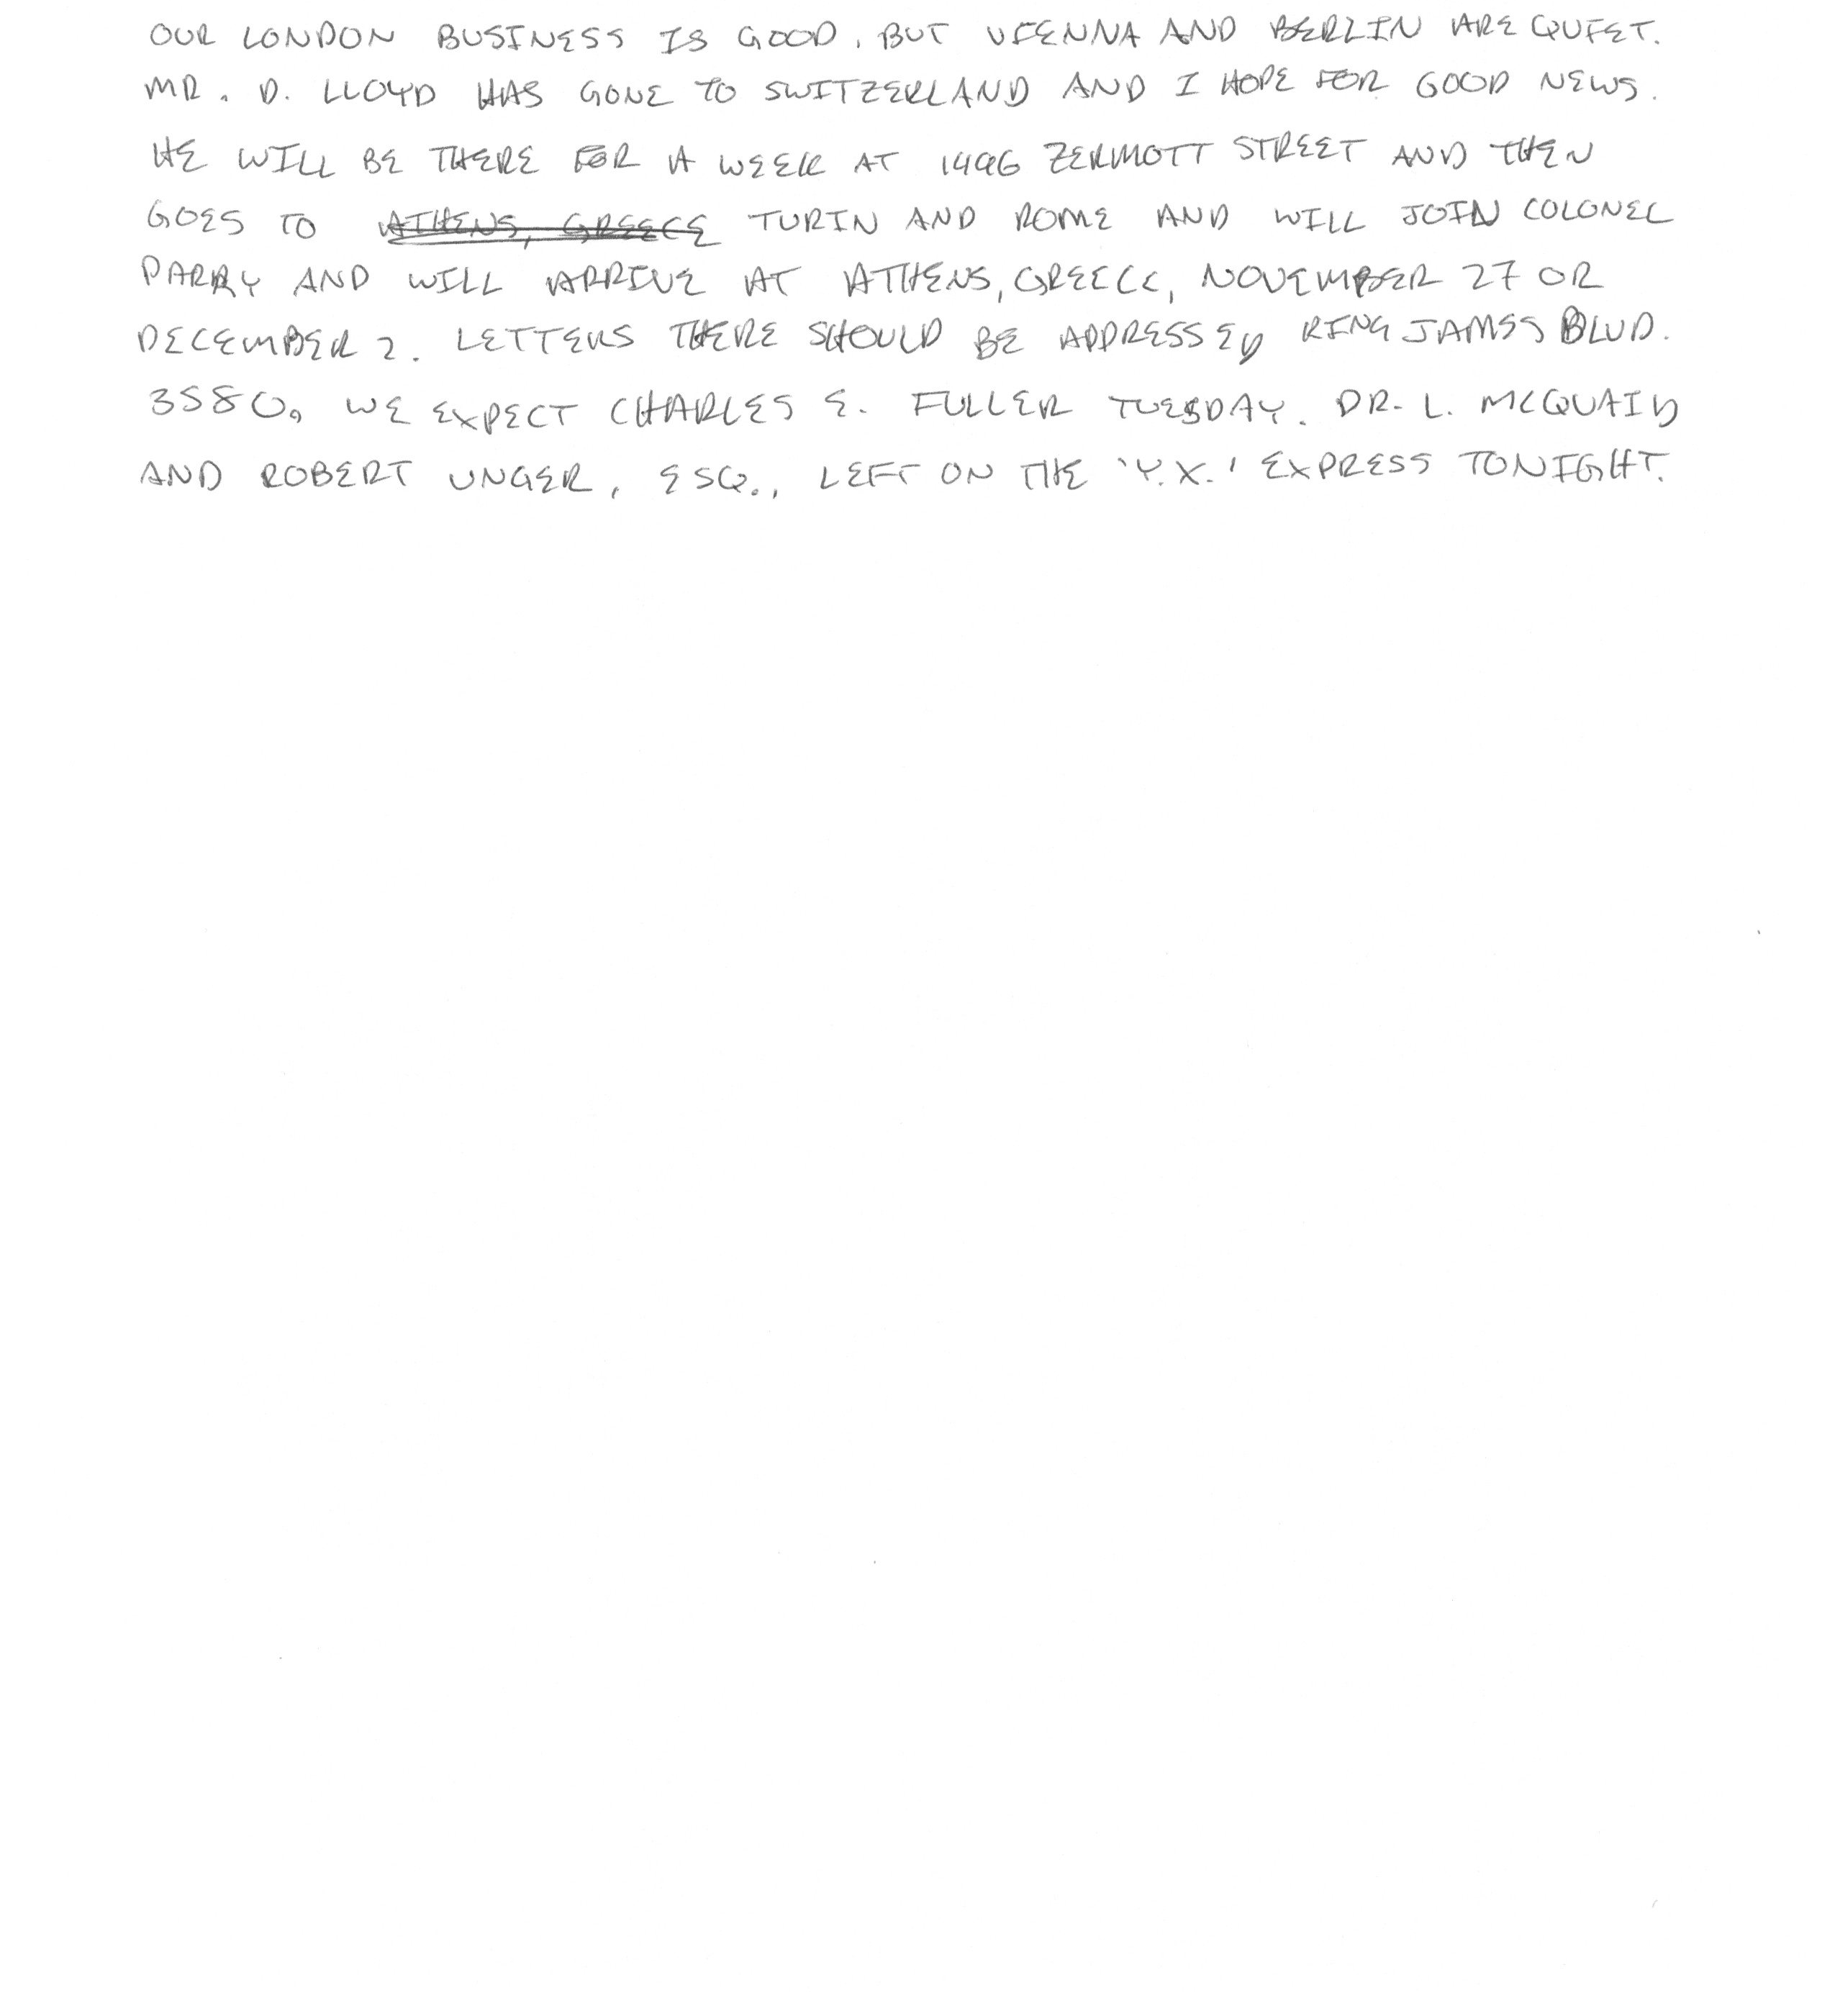 OUR LONDON BUSINESS IS GOOD, BUT VIENNA AND BERLIN ARE QUIET.
MR. D. LLOYD HAS GONE TO SWITZERLAND AND I HOPE FOR GOOD NEWS.
HE WILL BE THERE FOR A WEEK AT 1496 ZERMOTT STREET AND THEN
GOES TO ATHENS, GREECE TURIN AND ROME AND WILL JOIN COLONEL
PARRY AND WILL ARRIVE AT ATHENS, GREECE, NOVEMBER 27 OR
DECEMBER 2. LETTERS THERE SHOULD BE ADDRESSED KING JAMES BLVD.
3580. WE EXPECT CHARLES E. FULLER TUESDAY. DR. L. MCQUAID
AND ROBERT UNGER, ESQ., LEFT ON THE 'Y.X.' EXPRESS TONIGHT.